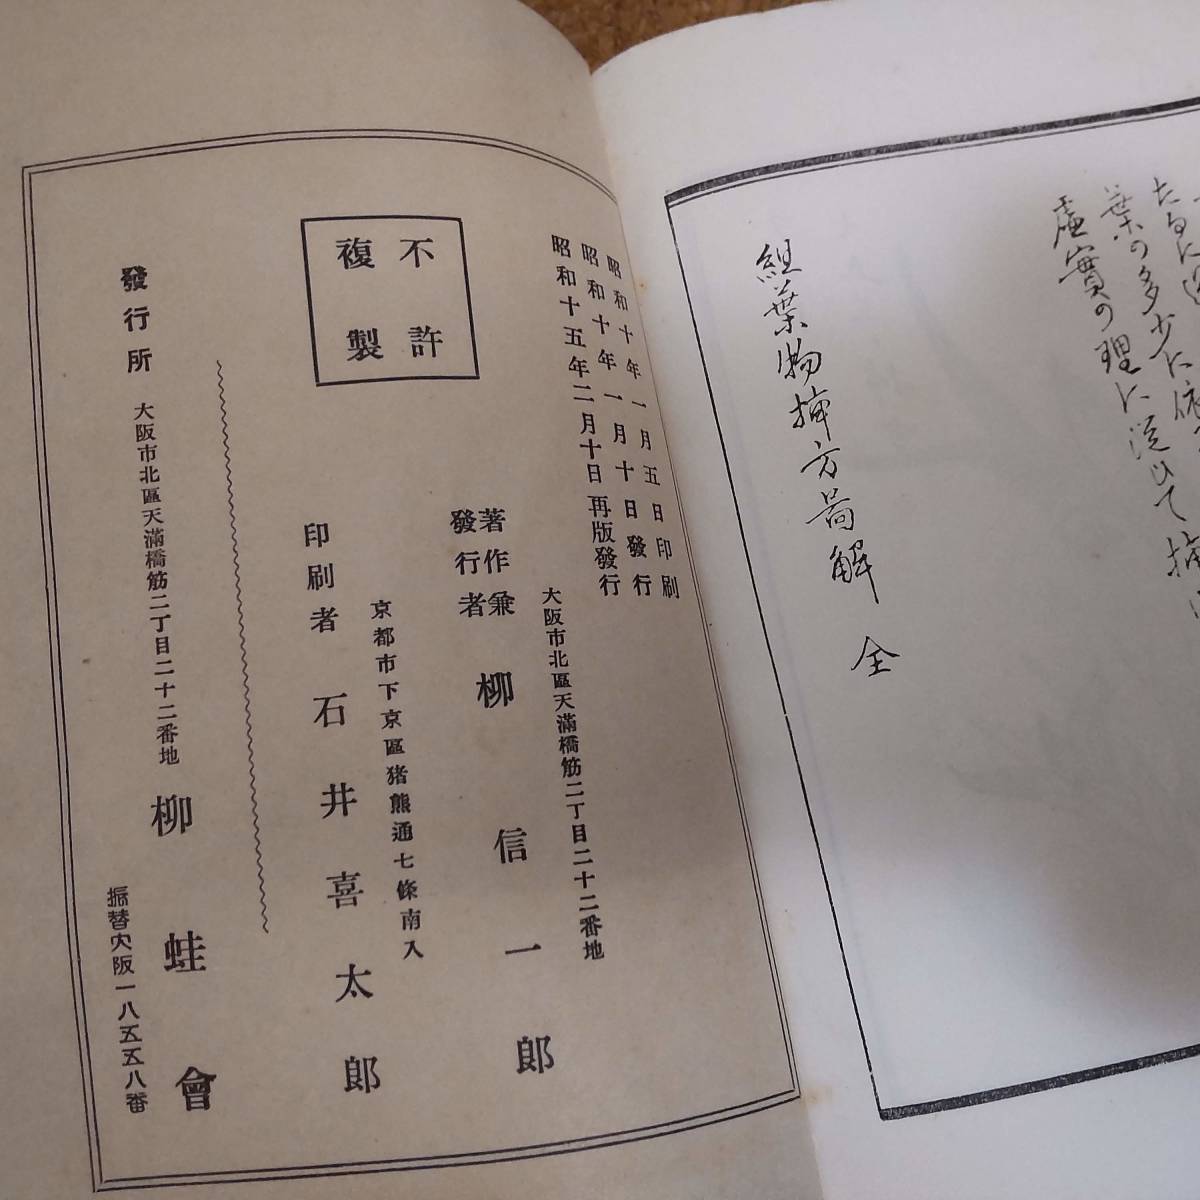 虛實の理に從ひて挿
組葉物挿方啚解 全
昭和十年一月五日印刷
昭和十年一月十日發行
昭和十五年二月十日再版發行
不許
複製
大阪市北區天滿橋筋二丁目二十二番地
著作兼
發行者
柳信一郎
京都市下京區猪熊通七條南入
印刷者 石井喜太郎
發行所 大阪市北區天滿橋筋二丁目二十二番地 柳蛙會
振替大阪一八五五八番